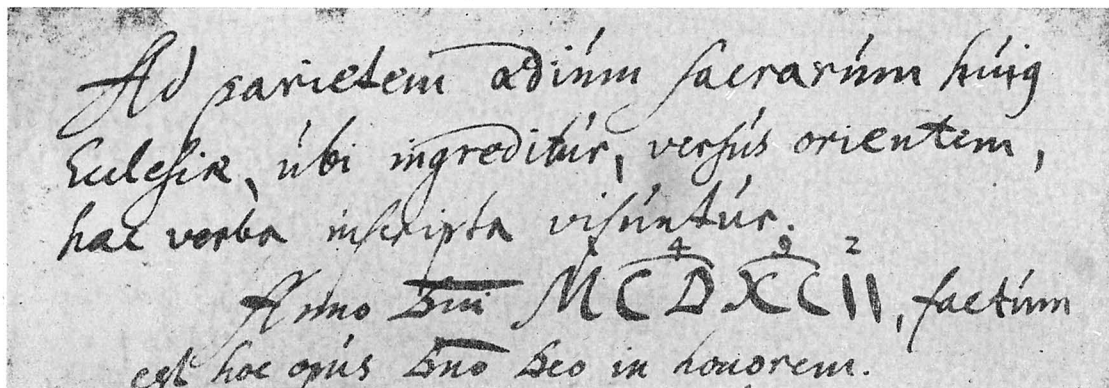 Ad parietem ædiúm sacrarúm húiꝯ
Ecclesiæ, úbi ingreditúr, versús orientem,
hæc verba inscripta visúntúr.
4 9 2
Anno Dni MCDXCII, factúm
est hoc opús Dno Deo in honorem.